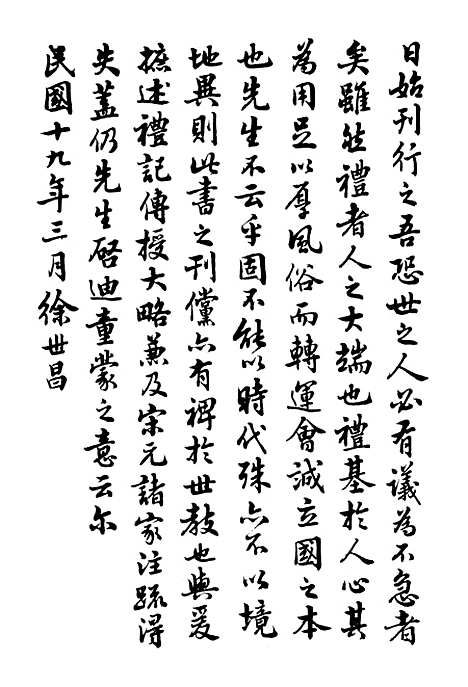 日始刊行之吾恐世之人必有議為不急者
矣雖然禮者人之大端也禮基於人心其
為用足以厚風俗而轉運會誠立國之本
也先生不云乎固不能以時代殊亦不以境
地異則此書之刊儻亦有裨於世教也與爰
摭述禮記傳授大略兼及宋元諸家注疏得
失蓋仍先生啓迪童蒙之意云尔
民國十九年三月徐世昌